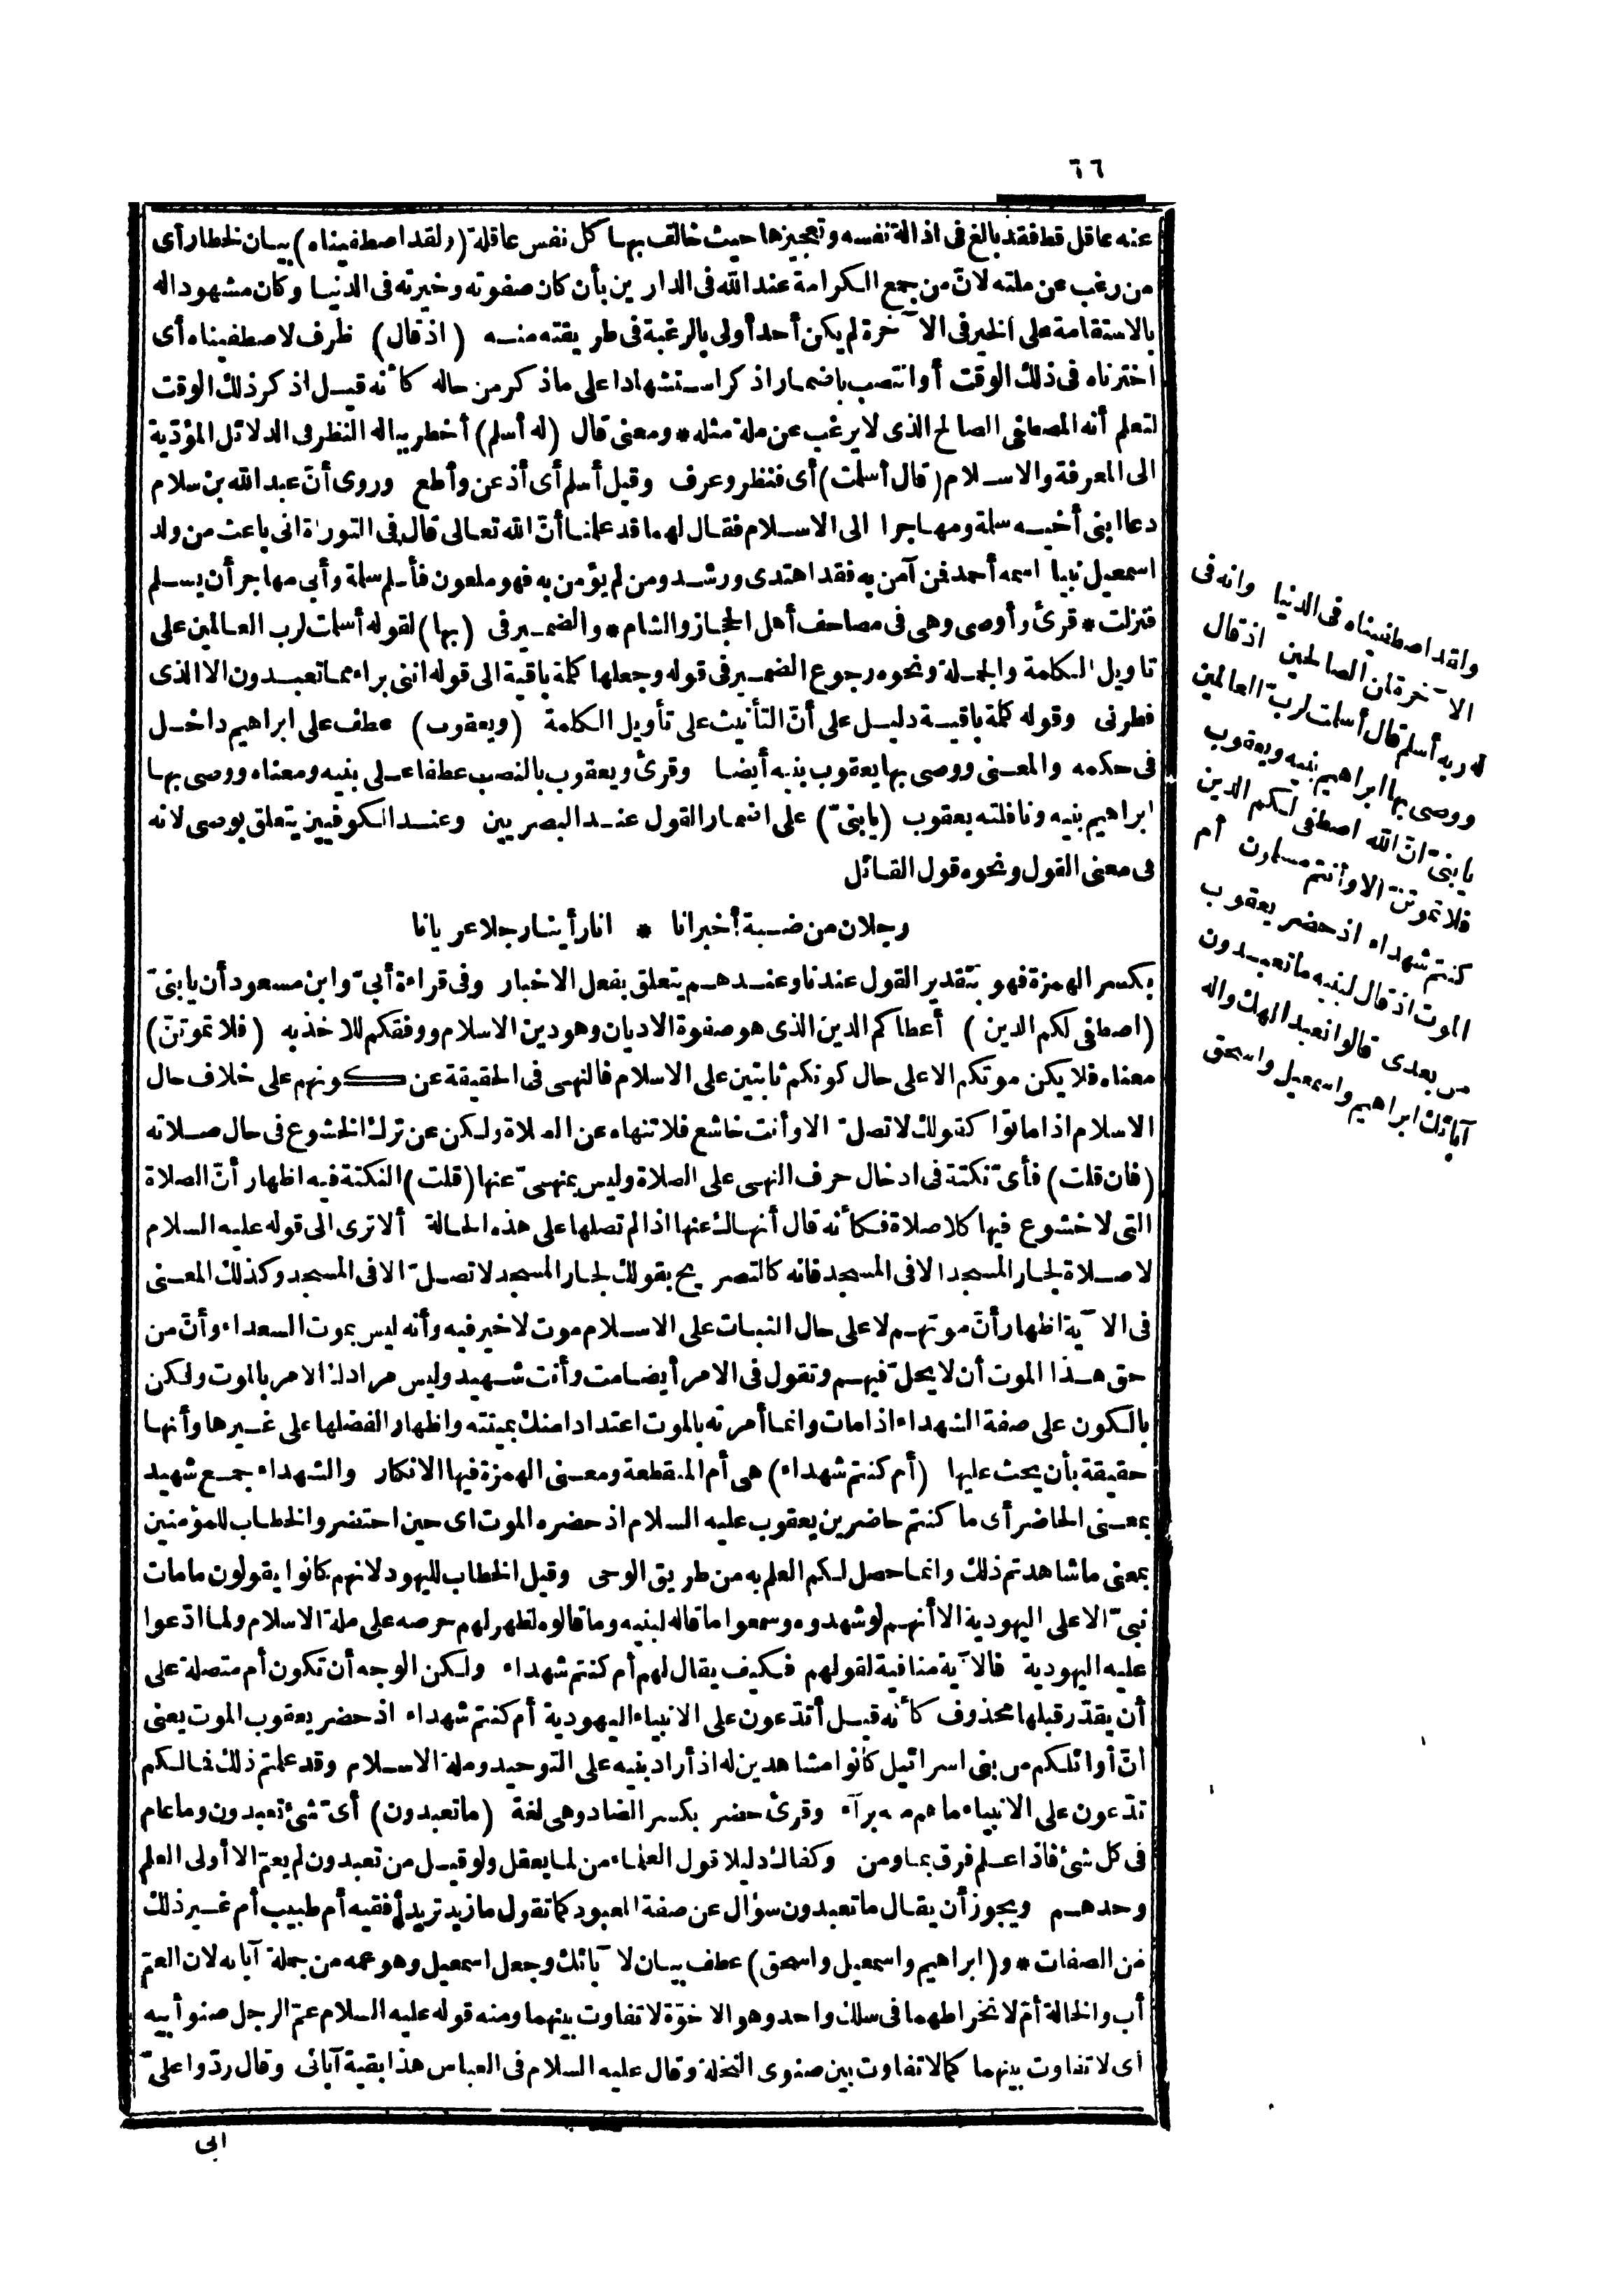 ٦٦
عنه عاقل قط فقد بالغ فى اذالة نفسه وتعجيزها حيث خالف بها كل نفس عاقلة (ولقد اصطفيناه) بيان لخطا رأى
من رغب عن ملته لانّ من جمع الكرامة عند الله فى الدارين بأن كان صفوته وخيرته فى الدنيا وكان مشهودا له
بالاستقامة على الخير فى الآخرة لم يكن أحد أولى بالرغبة فى طريقته منه (اذ قال) ظرف لاصطفيناه أى
اخترناه فى ذلك الوقت أو انتصب باضمار اذكر استشهادا على ماذكر من حاله كأنه قيل اذكر ذلك الوقت
لتعلم أنه المصطفى الصالح الذى لا يرغب عن ملة مثله * ومعنى قال (له أسلم) أخطر بباله النظر فى الدلائل المؤدّية
الى المعرفة والاسلام (قال أسلمت) أى فنظر وعرف وقيل أسلم أى أذعن وأطع وروى أنّ عبد الله بن سلام
دعا ابنى أخيه سلة ومهاجرا الى الاسلام فقال لهما قد علمنا أنّ الله تعالى قال فى التوراة انى باعث من ولد
اسمعيل نبيا اسمه أحمد فمن آمن به فقد اهتدى ورشد ومن لم يؤمن به فهو ملعون فأسلم سلة وأبى مهاجر أن يسلم
فنزلت * قرئ وأوصى وهى فى مصاحف أهل الحجاز والشام * والضمير فى (بها) لقوله أسلمت لرب العالمين على
تاويل الكلمة والجملة ونحوه رجوع الضمير فى قوله وجعلها كلمة باقية الى قوله اننى براء مما تعبدون الا الذى
فطرنى وقوله كلمة باقية دليل على أنّ التأنيث على تأويل الكلمة (ويعقوب) عطف على ابراهيم داخل
فى حكمه والمعنى ووصى بها يعقوب بنيه أيضا وقرئ ويعقوب بالنصب عطفا على بنيه ومعناه ووصى بها
ابراهيم بنيه ونافلته يعقوب (يابنىّ) على اضمار القول عند البصريين وعند الكوفيين يتعلق بوصى لانه
فى معنى القول ونحوه قول القائل
رجلان من ضبة أخبرانا * انا رأينا رجلا عريانا
بكسر الهمزة فهو بتقدير القول عندنا وعندهم يتعلق بفعل الاخبار وفى قراءة أبىّ وابن مسعود أن يابنىّ
(اصطفى لكم الدين) أعطاكم الدين الذى هو صفوة الاديان وهو دين الاسلام ووفقكم للاخذ به (فلا تموتنّ)
معناه فلا يكن موتكم الا على حال كونكم ثابتين على الاسلام فالنهى فى الحقيقة عن كونهم على خلاف حال
الاسلام اذا ماتوا كقولك لا تصلّ الا وأنت خاشع فلا تنهاه عن الصلاة ولكن عن ترك الخشوع فى حال صلاته
(فان قلت) فأىّ نكتة فى ادخال حرف النهى على الصلاة وليس بمنهىّ عنها (قلت) النكتة فيه اظهار أنّ الصلاة
التى لا خشوع فيها كلا صلاة فكأنه قال أنهاك عنها اذا لم تصلها على هذه الحالة ألا ترى الى قوله عليه السلام
لا صلاة لجار المسجد الا فى المسجد فانه كالتصريح بقولك لجار المسجد لا تصلّ الا فى المسجد وكذلك المعنى
فى الآية اظهار أنّ موتهم لا على حال الثبات على الاسلام موت لا خير فيه وأنه ليس بموت السعداء وأنّ من
حق هذا الموت أن لا يحلّ فيهم وتقول فى الامر أيضا مت وأنت شهيد وليس مرادك الامر بالموت ولكن
بالكون على صفة الشهداء اذا مات وانما أمرته بالموت اعتدادا منك بميتته واظهارا لفضلها على غيرها وأنها
حقيقة بأن يحث عليها (أم كنتم شهداء) هى أم المنقطعة ومعنى الهمزة فيها الانكار والشهداء جمع شهيد
بمعنى الحاضر أى ما كنتم حاضرين يعقوب عليه السلام اذ حضره الموت اى حين احتضر والخطاب للمؤمنين
بمعنى ما شاهدتم ذلك وانما حصل لكم العلم به من طريق الوحى وقيل الخطاب لليهود لانهم كانوا يقولون ما مات
نبىّ الا على اليهودية الا أنهم لو شهدوه وسمعوا ما قاله لبنيه وما قالوه لظهر لهم حرصه على ملة الاسلام ولما ادّعوا
عليه اليهودية فالآية منافية لقولهم فكيف يقال لهم أم كنتم شهداء ولكن الوجه أن تكون أم متصلة على
أن يقدّر قبلها محذوف كأنه قيل أتدّعون على الانبياء اليهودية أم كنتم شهداء اذ حضر يعقوب الموت يعنى
انّ أوائلكم من بنى اسرائيل كانوا مشاهدين له اذ أراد بنيه على التوحيد وملة الاسلام وقد علمتم ذلك فمالكم
تدّعون على الانبياء ما هم منه برآء وقرئ حضر بكسر الضاد وهى لغة (ما تعبدون) أىّ شئ تعبدون وما عام
فى كل شئ فاذا علم فرق بما ومن وكفاك دليلا قول العلماء من لما يعقل ولو قيل من تعبدون لم يعمّ الا أولى العلم
وحدهم ويجوز أن يقال ما تعبدون سؤال عن صفة المعبود كما تقول ما زيد تريد أفقيه أم طبيب أم غير ذلك
من الصفات * و(ابراهيم واسمعيل واسحق) عطف بيان لآبائك وجعل اسمعيل وهو عمه من جملة آبائه لان العمّ
أب والخالة أمّ لانخراطهما فى سلك واحد وهو الاخوّة لا تفاوت بينهما ومنه قوله عليه السلام عمّ الرجل صنو أبيه
أى لا تفاوت بينهما كما لا تفاوت بين صنوى النخلة وقال عليه السلام فى العباس هذا بقية آبائى وقال ردّوا علىّ
ابى
ولقد اصطفيناه فى الدنيا وانه فى
الآخرة لمن الصالحين اذ قال
له ربه أسلم قال أسلمت لرب العالمين
ووصى بها ابراهيم بنيه ويعقوب
يابنىّ انّ الله اصطفى لكم الدين
فلا تموتنّ الا وأنتم مسلمون أم
كنتم شهداء اذ حضر يعقوب
الموت اذ قال لبنيه ما تعبدون
من بعدى قالوا نعبد الهك واله
آبائك ابراهيم واسمعيل واسحق